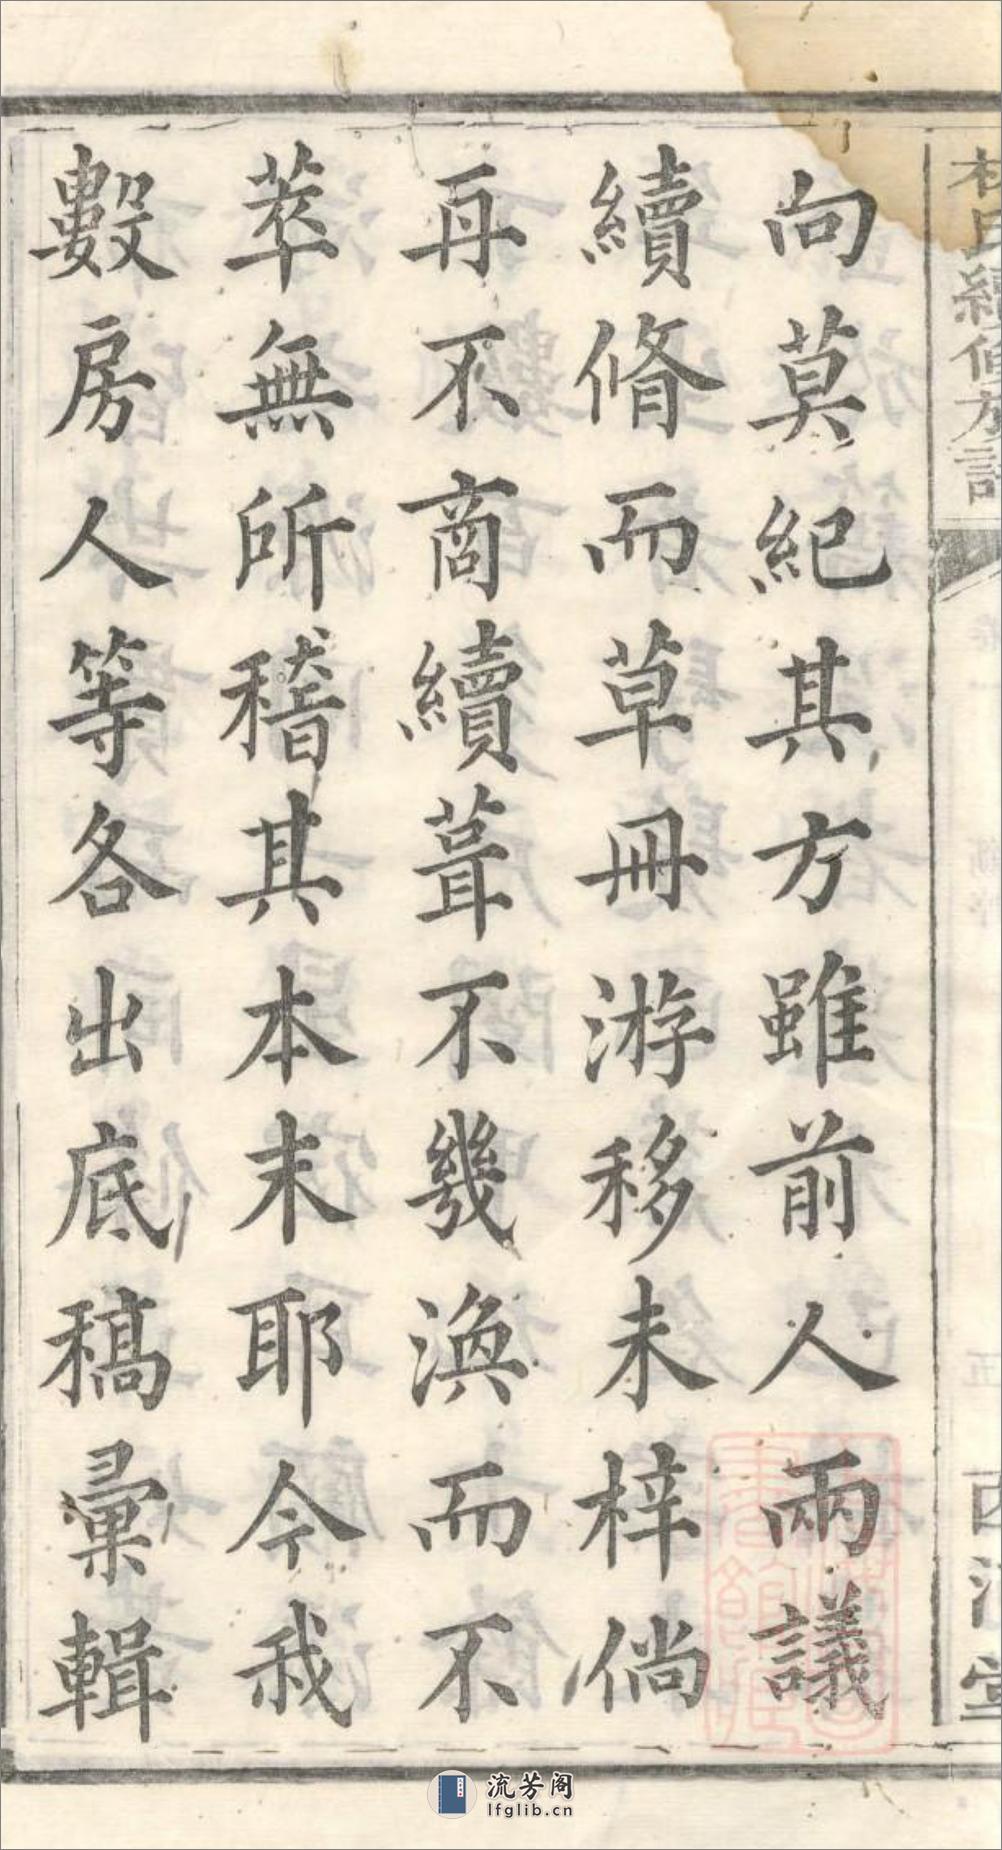 向莫紀其方雖前人兩議
續脩而草冊游移未梓倘
再不商續葺不幾渙而不
萃無所稽其本末耶今我
數房人等各出底稿彙輯
流芳阁
lfglib.cn